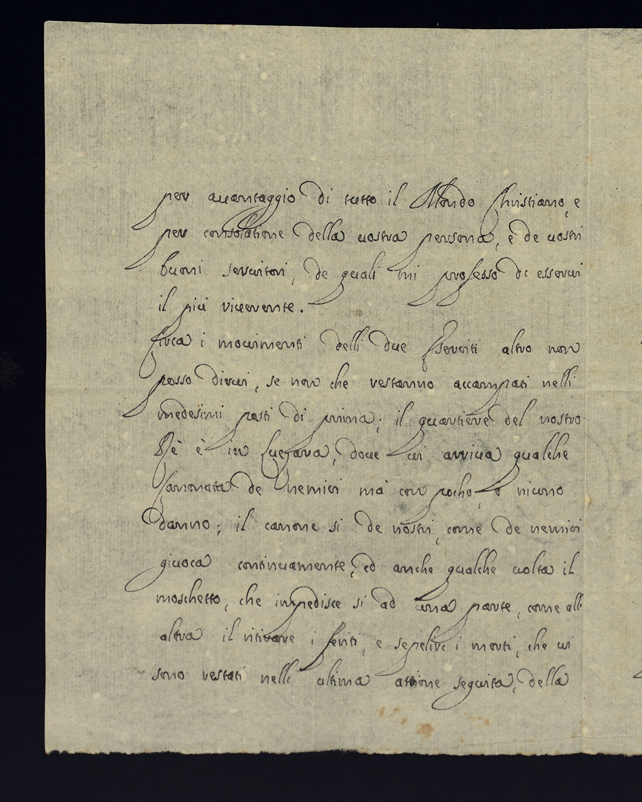 per auantaggio di tutto il Mondo Christiano, e
per consolatione della uostra persona, e de uostri
buoni seruitori, de quali mi professo di esserui
il più riuerente.
Circa i mouimenti delli due Eserciti altro non
posso dirui, se non che restanno accampati nelli
medesimi posti di prima; il quartiere del nostro
Rè è in Luzara, doue ui arriua qualche
Canonata de Nemici mà con pocho, ò niuno
danno; il canone si de nostri, come de nemici
giuoca continuamente, ed anche qualche uolta il
moschetto, che impedisce si ad una parte, come all
altra il ritirare i feriti, e sepelire i morti, che ui
sono restati nell ultima attione seguita, della